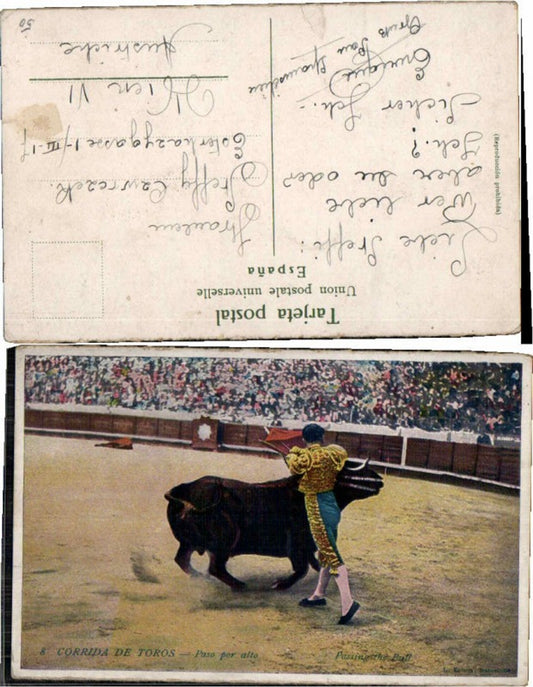 Tarjeta postal
Union postale universelle
España
Liebe Steffi!
Wer liebe
aber du oder
Ich?
Sicher Ich.-
Enrique
Fräulein
Steffy Lawrezek.
Esterhazygasse 1-III-17
Wien VI
Austriche
(Reproducción prohibida)
50
8 CORRIDA DE TOROS — Paso por alto
Passing the Bull